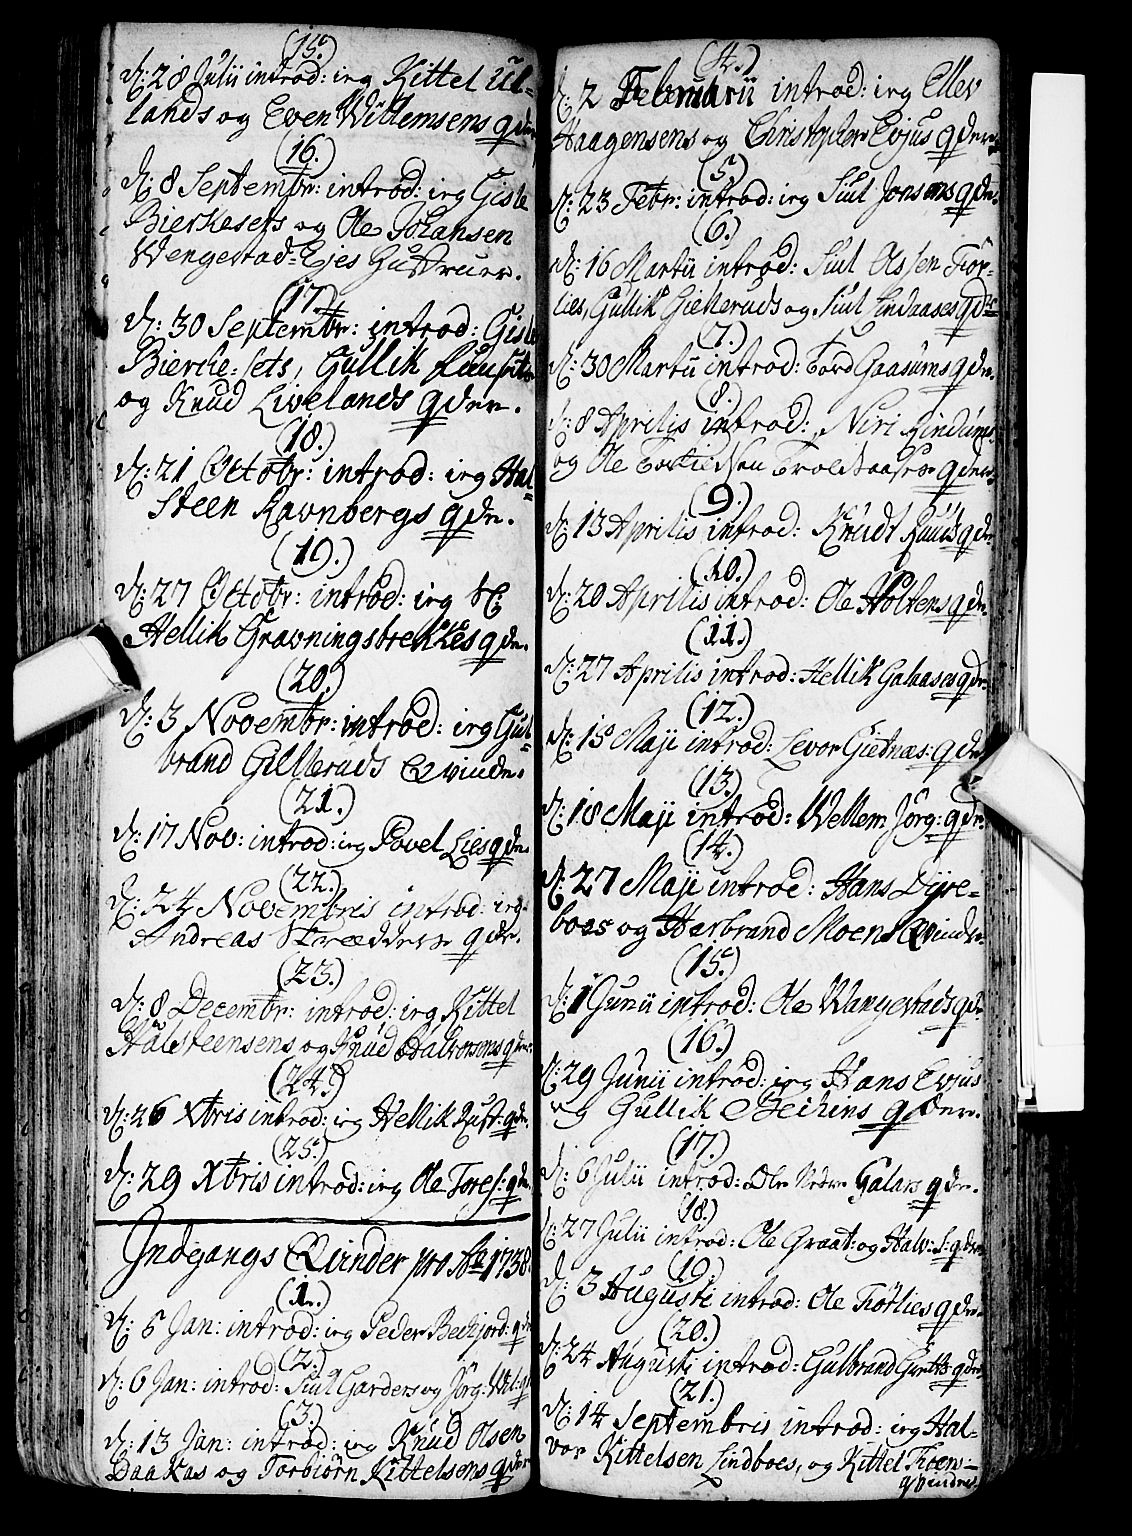 (15.)
d: 28 Julii introd: ieg Kittel Ul=
lands og Even Willemsens qder
(16.)
d: 8 Septembr: introd: ieg Gisle
Bierkesets og Ole Johansen
Wengestad=Ejes Hustruer.
(17.)
d: 30 Septembr: introd: Gisle
Bierche=sets, Gullik
og Knud Livelands qder.
(18.)
d: 21 Octobr: introd: ieg Hal=
steen Ravnbergs qde.
(19.)
d: 27 Octobr: introd: ieg
Hellik Gravningsbrekkes qde.
(20.)
d: 3 Novembr: introd: ieg Gul=
brand Gillleruds Qvinde.
(21.)
d: 17 Nov: introd: ieg Povel Lies qde.
(22.)
d: 24 Novembris introd: ieg
Andreas Skrædders qde.
(23.)
d: 8 Decembr: introd: ieg Kittel
Halsteensens og Knud Halvorsens qder:
(24.)
d: 26 Xbris introd: ieg Hellik Rust: qde.
(25.)
d: 29 Xbris introd: ieg Ole Tores: qde
Indgangs Qvinder pro Ao 1738.
(1.)
d: 5 Jan: introd: ieg Peder Beckjord: qde
(2.)
d: 6 Jan: introd: Siul Garders og Jörg: Wel: qd
(3.)
d: 13 Jan: introd: ieg Knud Olsen
Daakas og Torbiörn Kittelsens qder
(4.)
d: 2 Februarii introd: ieg Ellev
Haagensens og Christopher Evjus qder.
(5.)
d: 23 Febr: introd: ieg Siul Jonsens qde.
(6.)
d: 16 Martii introd: Siul Olssen Tror=
lies, Gullik Gielleruds og Siul Lindaases qder
(7.)
d: 30 Martii introd: Tord Gaasums qde.
(8.)
d: 8 Aprilis introd: Niri
og Ole qder
(9.)
d: 13 Aprilis introd: Knudt Ruuds qde.
(10.)
d: 20 Aprilis introd: Ole Holtens qde.
(11.)
d: 27 Aprilis introd: Hellik Galaases qde.
(12.)
d: 15 Maji introd: Levor Gietnæs: qde
(13.)
d: 18 Maji introd: Wellem Jörg: qde.
(14.)
d: 27 Maji introd: Hans Dyre=
boes og Herbrand Moens Qvinder.
(15.)
d: 1 Junii introd: Ole Wangestads qde
(16.)
d: 29 Junii introd: ieg Hans Evjus
og Gullik Bechins qder.
(17.)
d: 6 Julii introd: Ole Nedre Galaas qde.
(18.)
d: 27 Julii introd: Ole Graat: og Halv: S: qder
(19.)
d: 3 Augusti introd: Ole Trörlies qde.
(20.)
d: 24 Augusti introd: Gulbrand qde
(21.)
d: 14 Septembris introd: ieg Hal=
vor Kittelsen Lindboes, og Kittel Troens=
qvinder.